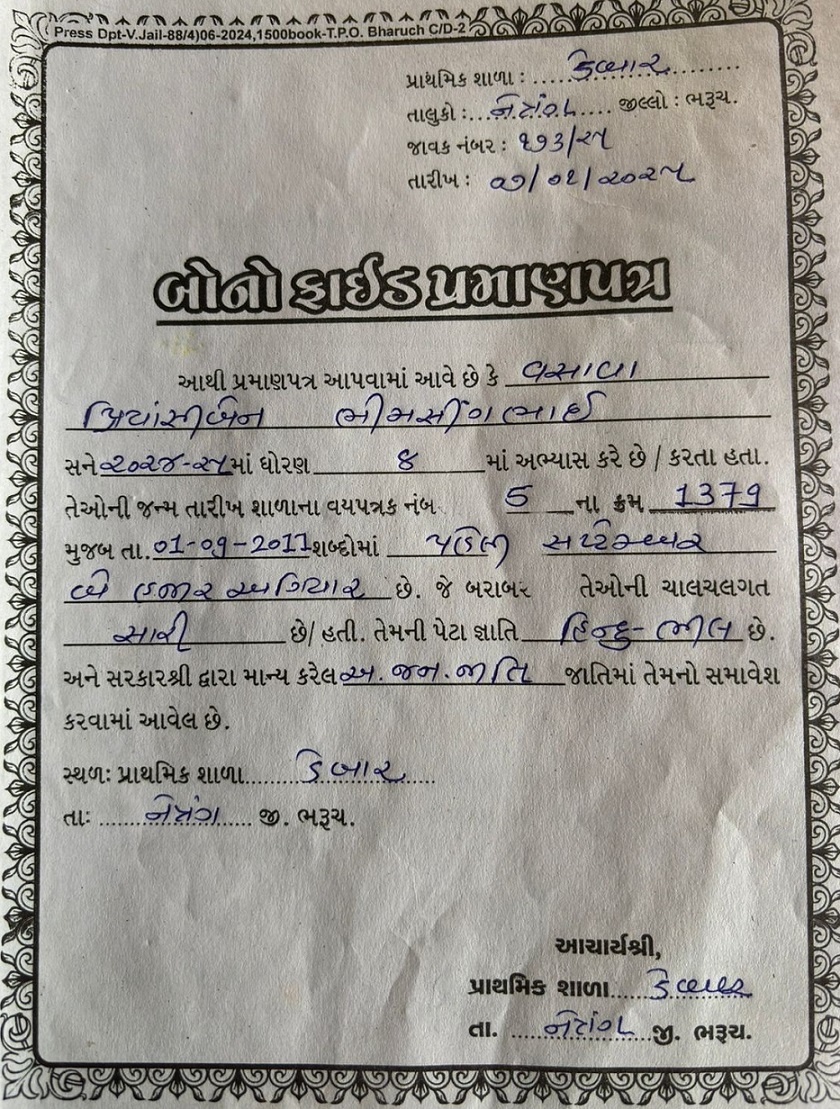 Press Dpt-V.Jail-88/4)06-2024,1500book-T.P.O. Bharuch C/D-2
પ્રાથમિક શાળા : ..... ડેબાર ........
તાલુકો :... નેત્રંગ .... જીલ્લો : ભરૂચ.
જાવક નંબર : ૧૭૩/૨૫
તારીખ : ૦૭/૦૧/૨૦૨૫
બોનો ફાઈડ પ્રમાણપત્ર
આથી પ્રમાણપત્ર આપવામાં આવે છે કે વસાવા
પ્રિયાંસીબેન ભીમસીંગભાઈ
સને ૨૦૨૪-૨૫માં ધોરણ ૪ માં અભ્યાસ કરે છે / કરતા હતા.
તેઓની જન્મ તારીખ શાળાના વયપત્રક નંબ 5 ના ક્રમ 1379
મુજબ તા. 01-09-2011 શબ્દોમાં પહેલી સપ્ટેમ્બર
બે હજાર અગિયાર છે. જે બરાબર તેઓની ચાલચલગત
સારી છે/ હતી. તેમની પેટા જ્ઞાતિ હિન્દુ-ભીલ છે.
અને સરકારશ્રી દ્વારા માન્ય કરેલ અ.જન.જાતિ જાતિમાં તેમનો સમાવેશ
કરવામાં આવેલ છે.
સ્થળઃ પ્રાથમિક શાળા...... ડેબાર .....
તાઃ ...... નેત્રંગ ..... જી. ભરૂચ.
આચાર્યશ્રી,
પ્રાથમિક શાળા.... ડેબાર
તા. .... નેત્રંગ .... જી. ભરૂચ.